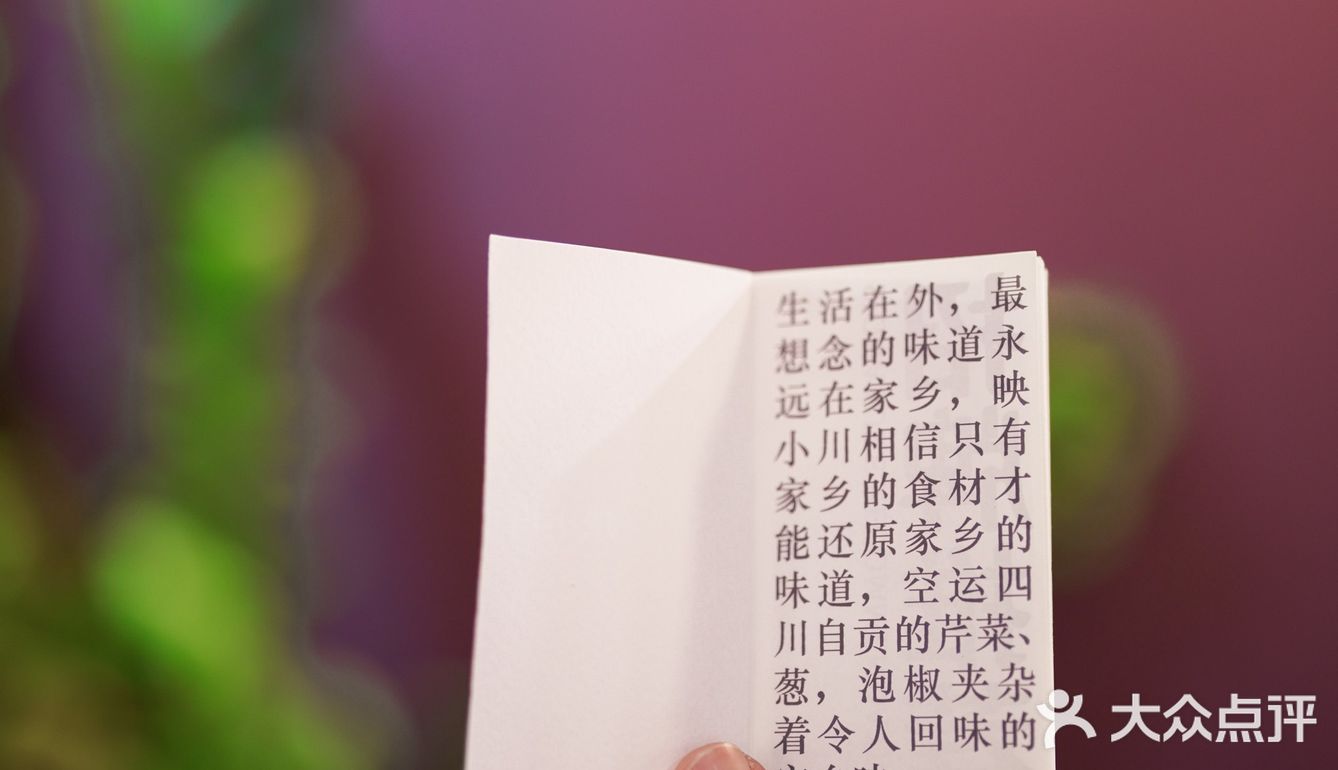 生活在外，最
想念的味道永
远在家乡，映
小川相信只有
家乡的食材才
能还原家乡的
味道，空运四
川自贡的芹菜、
葱，泡椒夹杂
着令人回味的
大众点评